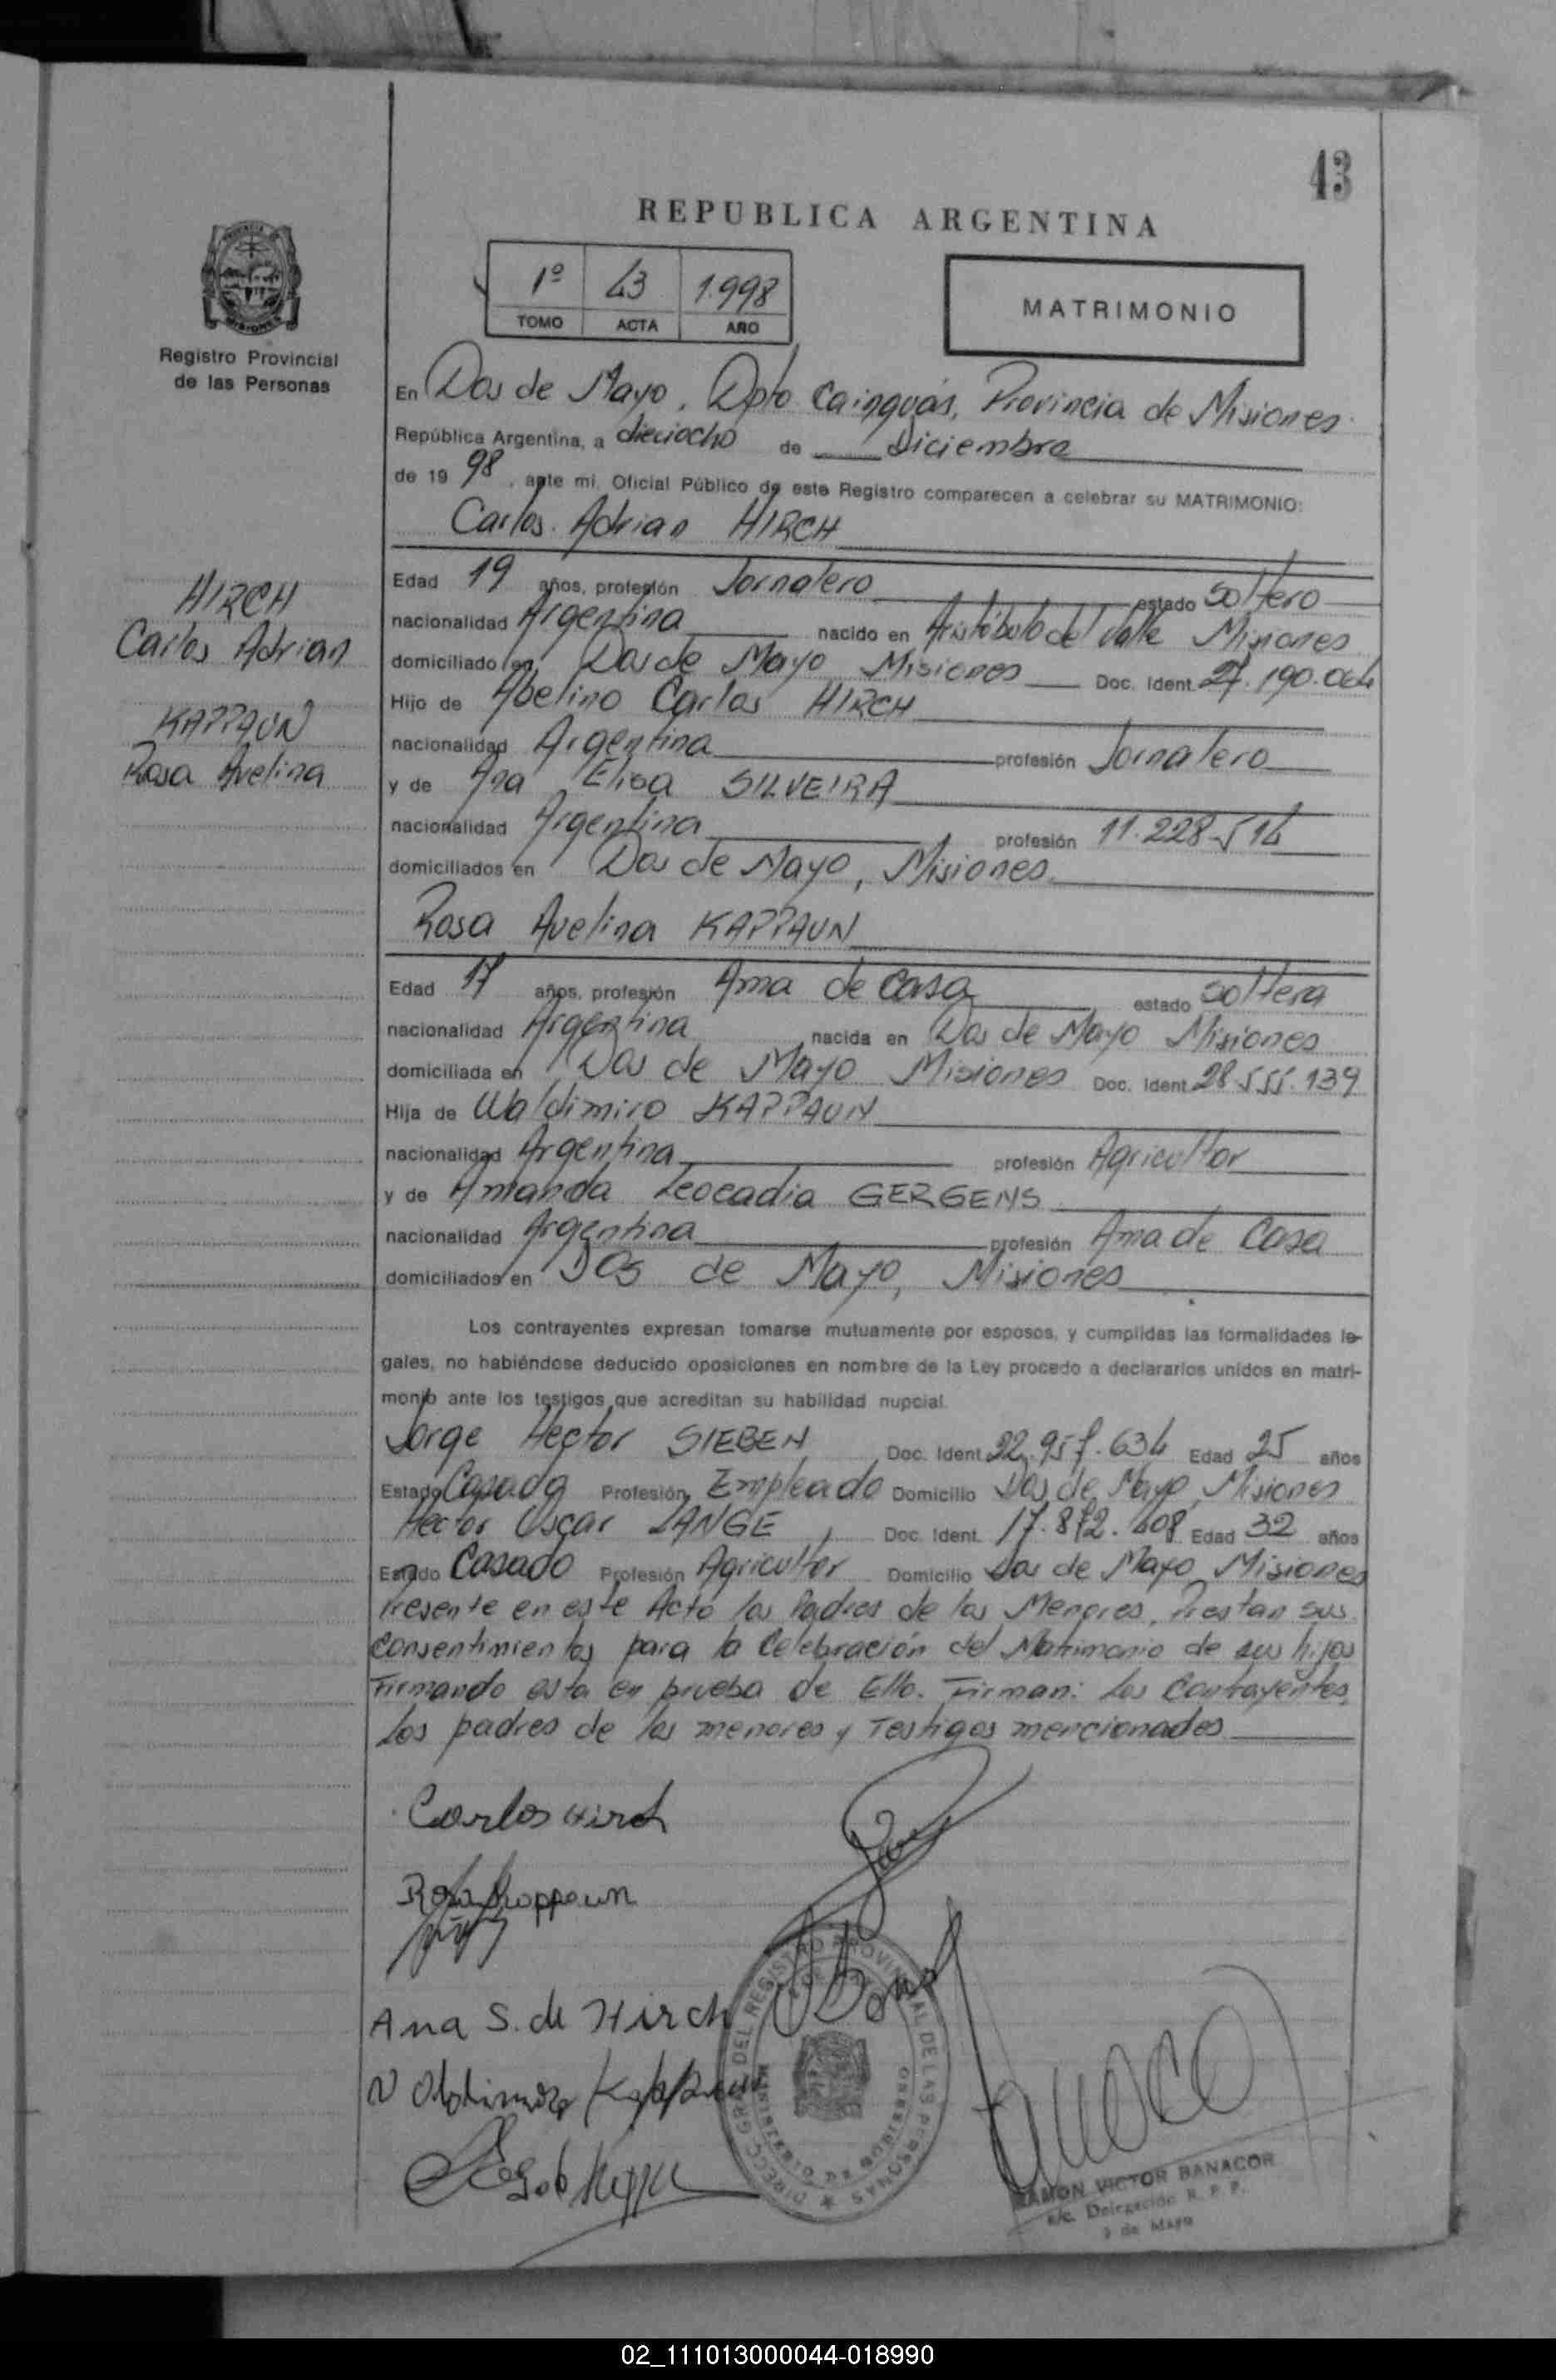 43
REPUBLICA ARGENTINA
1º 43 1.998
TOMO ACTA AÑO
MATRIMONIO
Registro Provincial
de las Personas
En Dos de Mayo, Dpto Cainguás, Provincia de Misiones
República Argentina, a dieciocho de Diciembre
de 19 98, ante mi, Oficial Público de este Registro comparecen a celebrar su MATRIMONIO:
Carlos Adrian HIRCH
HIRCH
Carlos Adrian
KAPPAUN
Rosa Avelina
Edad 19 años, profesión Jornalero estado Soltero
nacionalidad Argentina nacido en Aristóbulo del Valle Misiones
domiciliado en Dos de Mayo Misiones Doc. Ident. 27.190.064
Hijo de Abelino Carlos HIRCH
nacionalidad Argentina profesión Jornalero
y de Ana Elisa SILVEIRA
nacionalidad Argentina profesión 11.228.514
domiciliados en Dos de Mayo, Misiones
Rosa Avelina KAPPAUN
Edad 17 años, profesión Ama de Casa estado Soltera
nacionalidad Argentina nacida en Dos de Mayo Misiones
domiciliada en Dos de Mayo Misiones Doc. Ident. 28.555.139
Hija de Waldimiro KAPPAUN
nacionalidad Argentina profesión Agricultor
y de Amanda Leocadia GERGENS
nacionalidad Argentina profesión Ama de Casa
domiciliados en Dos de Mayo, Misiones
Los contrayentes expresan tomarse mutuamente por esposos, y cumplidas las formalidades le-
gales, no habiéndose deducido oposiciones en nombre de la Ley procedo a declararlos unidos en matri-
monio ante los testigos que acreditan su habilidad nupcial.
Jorge Hector SIEBEN Doc. Ident. 22.957.634 Edad 25 años
Estado Casado Profesión Empleado Domicilio Dos de Mayo Misiones
Hector Oscar LANGE, Doc. Ident. 17.872.408 Edad 32 años
Estado Casado Profesión Agricultor Domicilio Dos de Mayo Misiones
Presente en este Acto los Padres de los Menores, Prestan sus
Consentimientos para la Celebración del Matrimonio de sus hijos
Firmando esta en prueba de Ello. Firman: Los Contrayentes
Los padres de los menores y Testigos mencionados
Carlos Hirch
Rosa Kappaun
Ana S. de Hirch
DIRECC. GRAL. DEL REGISTRO PROVINCIAL DE LAS PERSONAS
MINISTERIO DE GOBIERNO
RAMON VICTOR BANACOR
a/c. Delegación R. P. P.
2 de Mayo
02_111013000044-018990